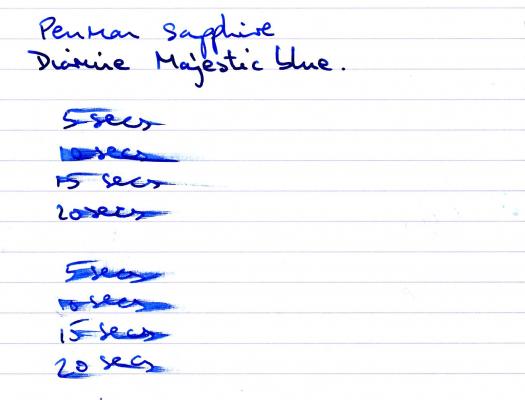 Penman Sapphire
Diamine Majestic blue.
5 secs
10 secs
15 secs
20 secs
5 secs
10 secs
15 secs
20 secs